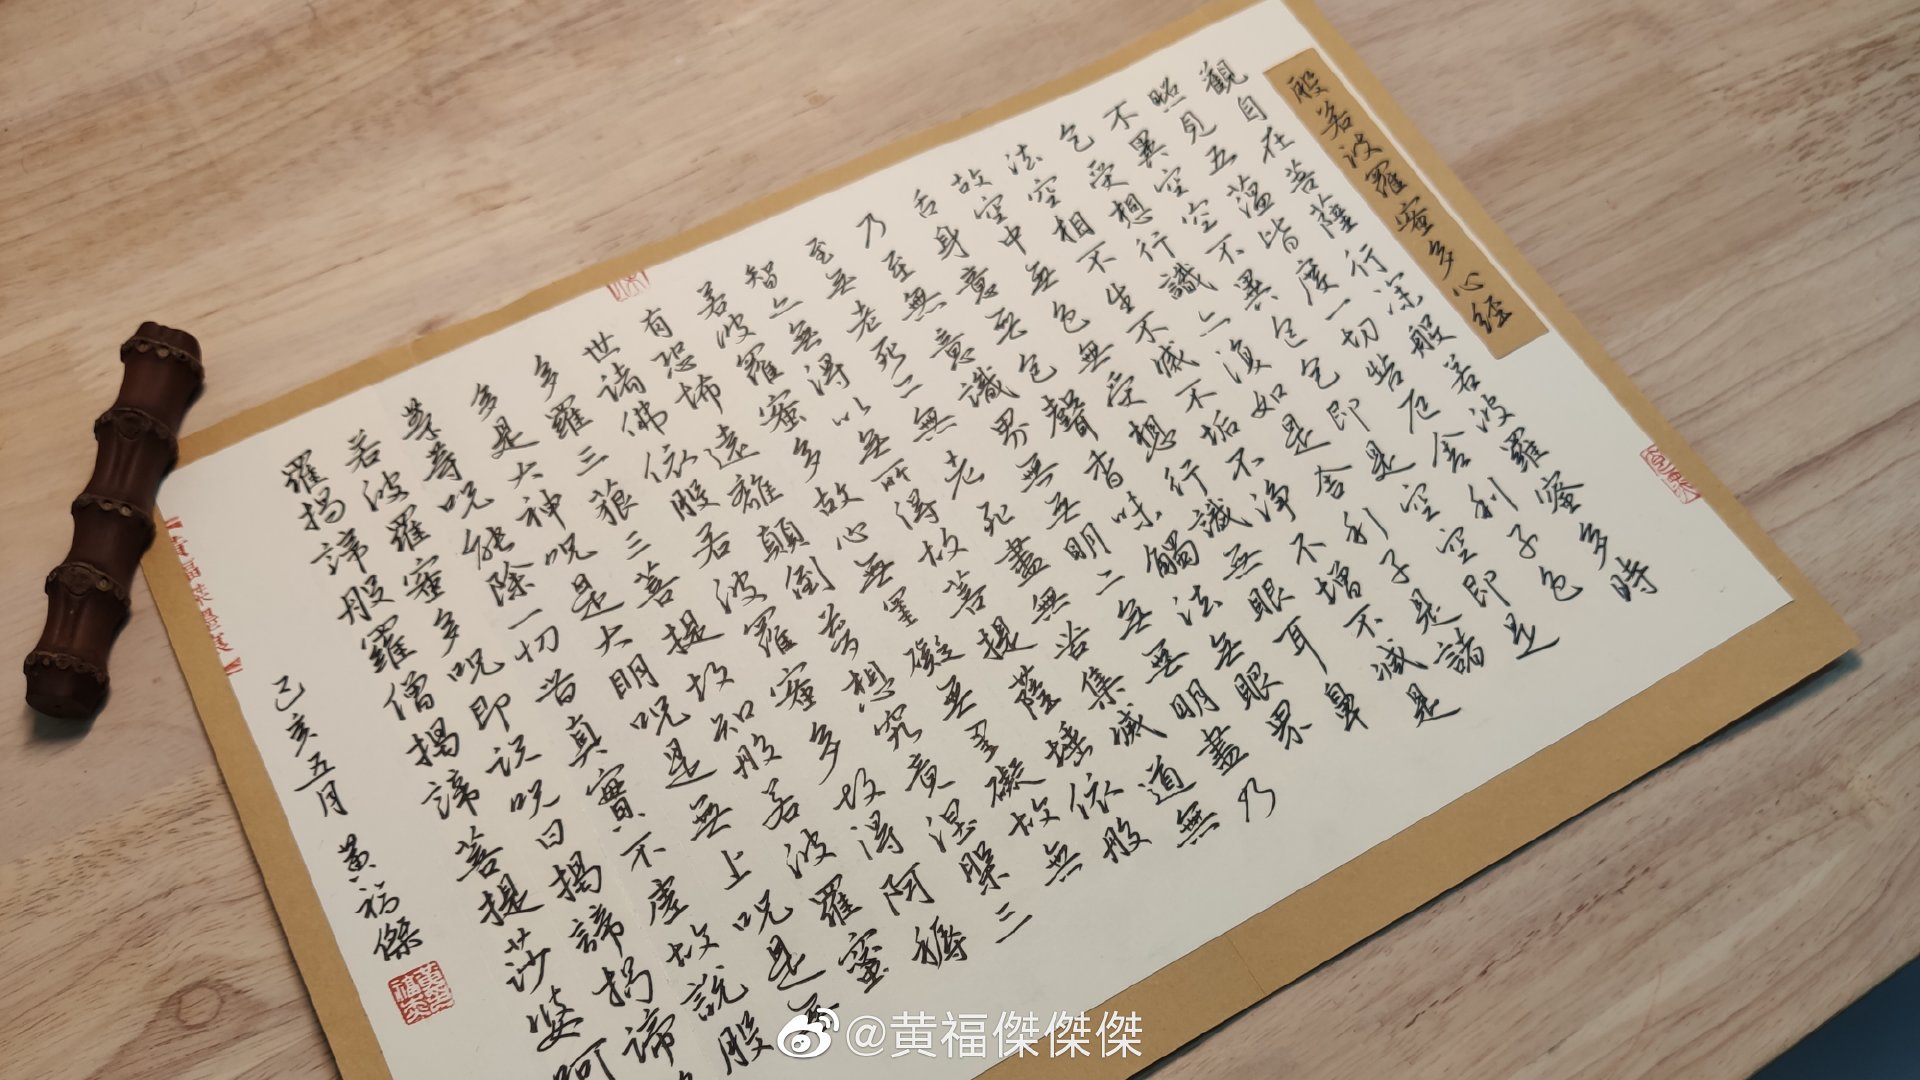 般若波羅蜜多心経
觀自在菩薩行深般若波羅蜜多時
照見五蘊皆度一切苦厄舍利子色
不異空空不異色色即是空空即是
色受想行識亦復如是舍利子是諸
法空相不生不滅不垢不淨不增不減是
故空中無色無受想行識無眼耳鼻
舌身意無色聲香味觸法無眼界
乃至無意識界無無明亦無無明盡乃
至無老死亦無老死盡無苦集滅道無
智亦無得以無所得故菩提薩埵依般
若波羅蜜多故心無罣礙無罣礙故無
有恐怖遠離顛倒夢想究竟涅槃三
世諸佛依般若波羅蜜多故得阿耨
多羅三藐三菩提故知般若波羅蜜
多是大神咒是大明咒是無上咒是無
等等咒能除一切苦真實不虛故說般
若波羅蜜多咒即說咒曰揭諦揭諦
羅揭諦般羅僧揭諦菩提莎婆訶
己亥五月 黃福傑
【黃福傑墨寶】
@黄福傑傑傑